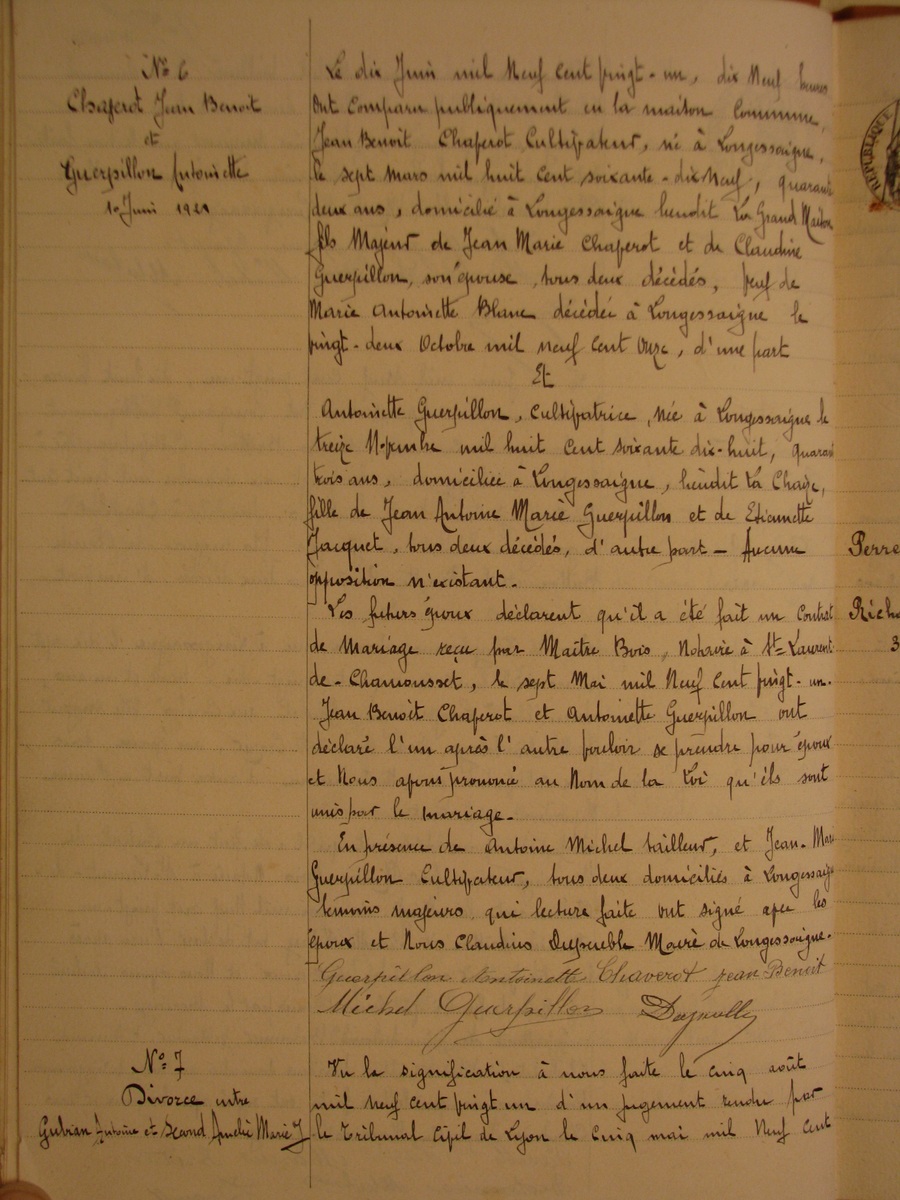 N° 6
Chaverot Jean Benoit
et
Guerpillon Antoinette
10 Juin 1921
Le dix Juin mil Neuf Cent vingt-un, dix Neuf heures
Ont Comparu publiquement en la maison Commune,
Jean Benoit Chaverot Cultivateur, né à Longessaigne,
le sept Mars mil huit Cent soixante-dix Neuf, quarante
deux ans, domicilié à Longessaigne lieudit La Grand Maison
fils Majeur de Jean Marie Chaverot et de Claudine
Guerpillon, son épouse, tous deux décédés, veuf de
Marie Antoinette Blanc décédée à Longessaigne le
vingt-deux Octobre mil neuf Cent Onze, d'une part
Et
Antoinette Guerpillon, Cultivatrice, Née à Longessaigne le
treize Novembre mil huit Cent soixante dix-huit, quaran
trois ans, domiciliée à Longessaigne, lieudit La Chaize,
fille de Jean Antoine Marie Guerpillon et de Etiennette
Jacquet, tous deux décédés, d'autre part - Aucune
opposition n'existant.
Les futurs époux déclarent qu'il a été fait un Contrat
de Mariage reçu par Maître Bois, Notaire à St-Laurent
de-Chamousset, le sept Mai mil Neuf Cent vingt-un.
Jean Benoît Chaverot et Antoinette Guerpillon ont
déclaré l'un après l'autre vouloir se prendre pour époux
et Nous avons prononcé au Nom de la Loi qu'ils sont
unis par le mariage.
En présence de Antoine Michel tailleur, et Jean-Mar
Guerpillon Cultivateur, tous deux domiciliés à Longessaigne
témoins majeurs, qui lecture faite ont signé avec les
époux et Nous Claudius Maire de Longessaigne.
Guerpillon Antoinette Chaverot jean Benoit
Michel Guerpillon
N° 7
Divorce entre
Antoine et Amelie Marie J
Vu la signification à nous faite le cinq août
mil neuf cent vingt un d'un jugement rendu par
le Tribunal Civil de Lyon le cinq mai mil Neuf Cent
Perre
Rich
3